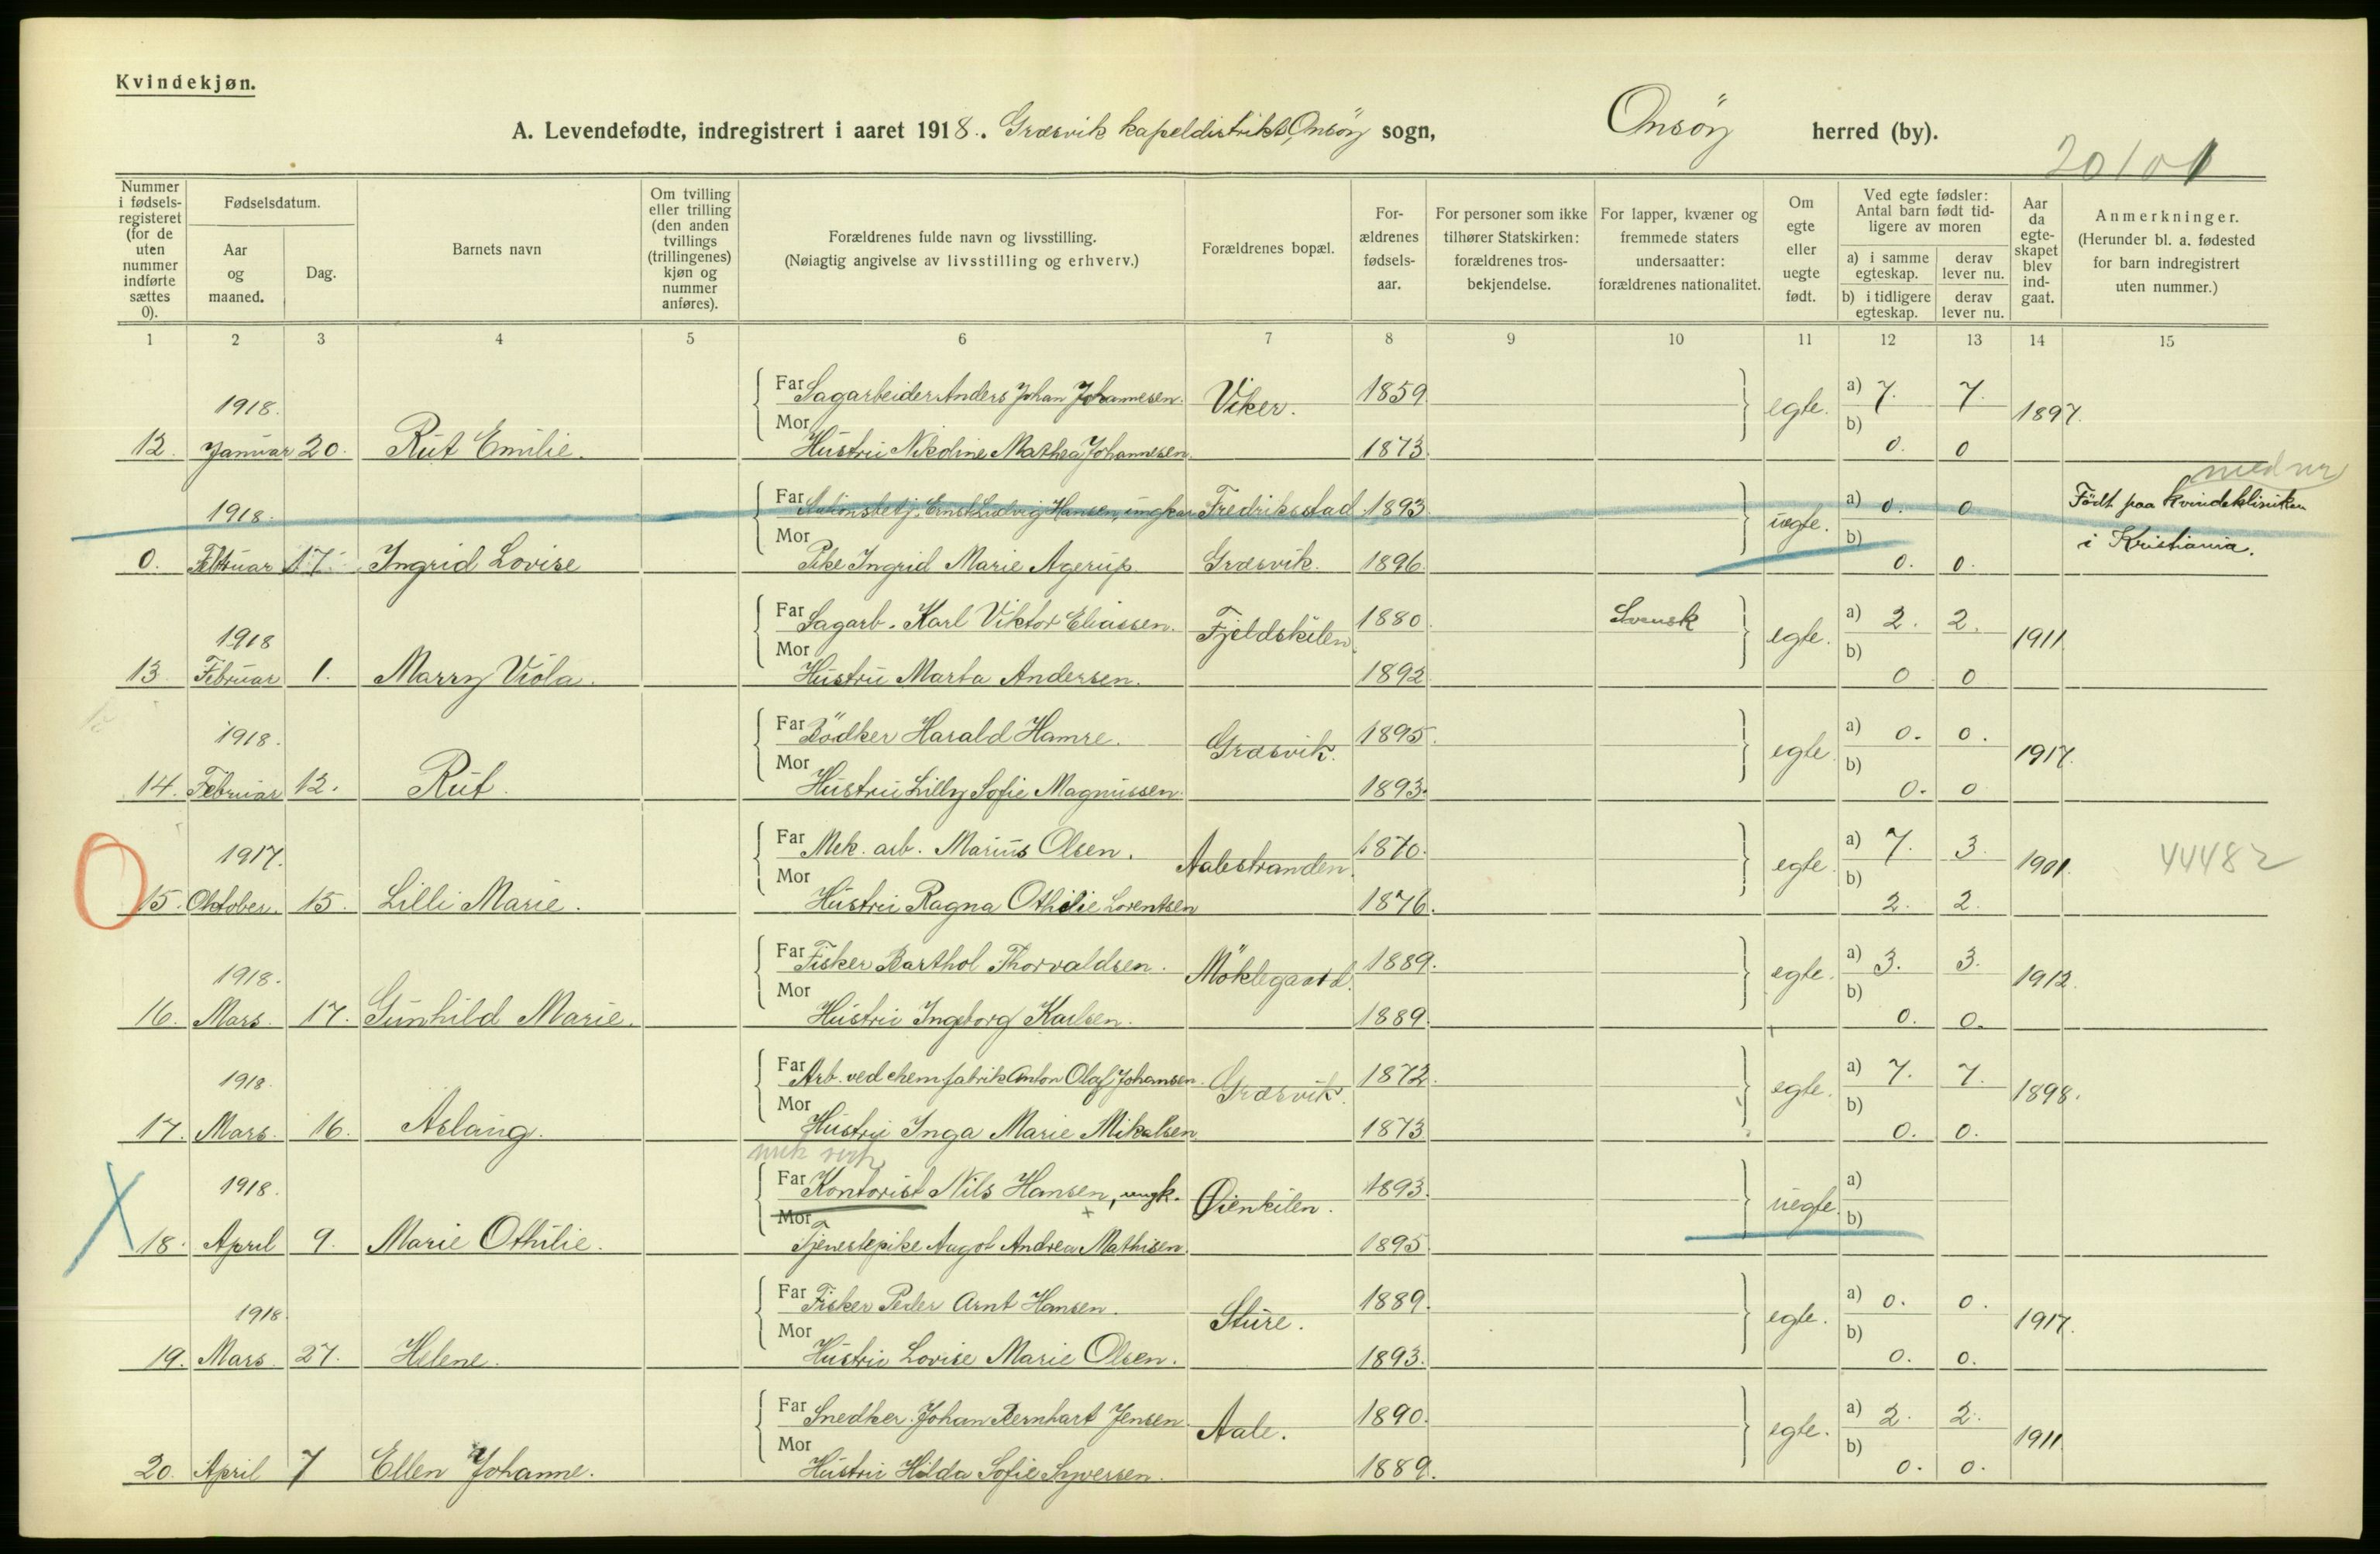 Kvindekjøn.
A. Levendefødte, indregistrert i aaret 1918. Græsvik kapeldistrikt, Onsöy sogn, Onsöy herred (by).
20101
Nummer i fødsels-registeret (for de uten nummer indførte sættes 0).
Fødselsdatum.
Aar og maaned.
Dag.
Barnets navn
Om tvilling eller trilling (den anden tvillings (trillingenes) kjøn og nummer anføres).
Forældrenes fulde navn og livsstilling.
(Nøiagtig angivelse av livsstilling og erhverv.)
Forældrenes bopæl.
For-ældrenes fødsels-aar.
For personer som ikke tilhører Statskirken: forældrenes tros-bekjendelse.
For lapper, kvæner og fremmede staters undersaatter: forældrenes nationalitet.
Om egte eller uegte født.
Ved egte fødsler: Antal barn født tid-ligere av moren
a) i samme egteskap.
derav lever nu.
b) i tidligere egteskap.
derav lever nu.
Aar da egte-skapet blev ind-gaat.
Anmerkninger.
(Herunder bl. a. fødested for barn indregistrert uten nummer.)
1 2 3 4 5 6 7 8 9 10 11 12 13 14 15
1918. Far Sagarbeider Anders Johan Johannesen. Viker. 1859 egte. a) 7. 7. 1897.
12. Januar 20. Rut Emilie. Mor Hustru Nikoline Mathea Johannesen. 1873. b) 0. 0
med nr
1918. Far Stationsbetj. Ernst Ludvig Hansen, ungkar Fredriksstad 1893 uegte. a) 0. 0 Født paa Kvindekliniken
0. Februar 17. Ingrid Lovise Mor Pike Ingrid Marie Agerup. Græsvik. 1896. b) 0. 0. i Kristiania.
1918 Far Sagarb. Karl Viktor Eliassen. Fjeldskilen. 1880 Svensk egte. a) 2. 2. 1911.
13. Februar 1. Marry Viola. Mor Hustru Marta Andersen. 1892 b) 0 0
1918. Far Bödker Harald Hamre. Græsvik. 1895. egte. a) 0. 0. 1917.
14. Februar 12. Rut. Mor Hustru Lilly Sofie Magnussen. 1893. b) 0. 0
1917. Far Mek. arb. Marius Olsen. Aalestranden. 1870. egte. a) 7. 3. 1901. 44482
15. Oktober. 15. Lilli Marie. Mor Hustru Ragna Othilie Lorentsen 1876. b) 2. 2.
1918. Far Fisker Barthol Thorvaldsen. Möklegaard. 1889. egte. a) 3. 3. 1912.
16. Mars. 17. Gunhild Marie. Mor Hustru Ingeborg Karlsen. 1889. b) 0. 0.
1918. Far Arb. ved chem. fabrik Anton Olaf Johansen. Græsvik. 1872. egte. a) 7. 7. 1898.
17. Mars. 16. Aslaug. Mor Hustru Inga Marie Mikalsen 1873 b) 0. 0.
mek verk
1918. Far Kontorist Nils Hansen, ungk. Øienkilen. 1893. uegte. a)
18. April 9. Marie Othilie. Mor Tjenestepike Aagot Andrea Mathisen. 1895. b)
1918. Far Fisker Peder Arnt Hansen. Sture. 1889. egte. a) 0. 0. 1917.
19. Mars. 27. Helene. Mor Hustru Lovise Marie Olsen. 1893. b) 0. 0.
Far Snedker Johan Bernhart Jensen. Aale. 1890. egte. a) 2. 2. 1911.
20. April 7 Ellen Johanne. Mor Hustru Hilda Sofie Syversen. 1889. b) 0. 0.